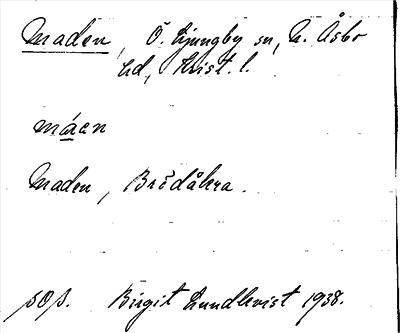 Maden, Ö. Ljungby sn, N. Åsbo
hd, Krist. l.
máen
Maden, Brödåkra.
Birgit Lundkvist 1938.